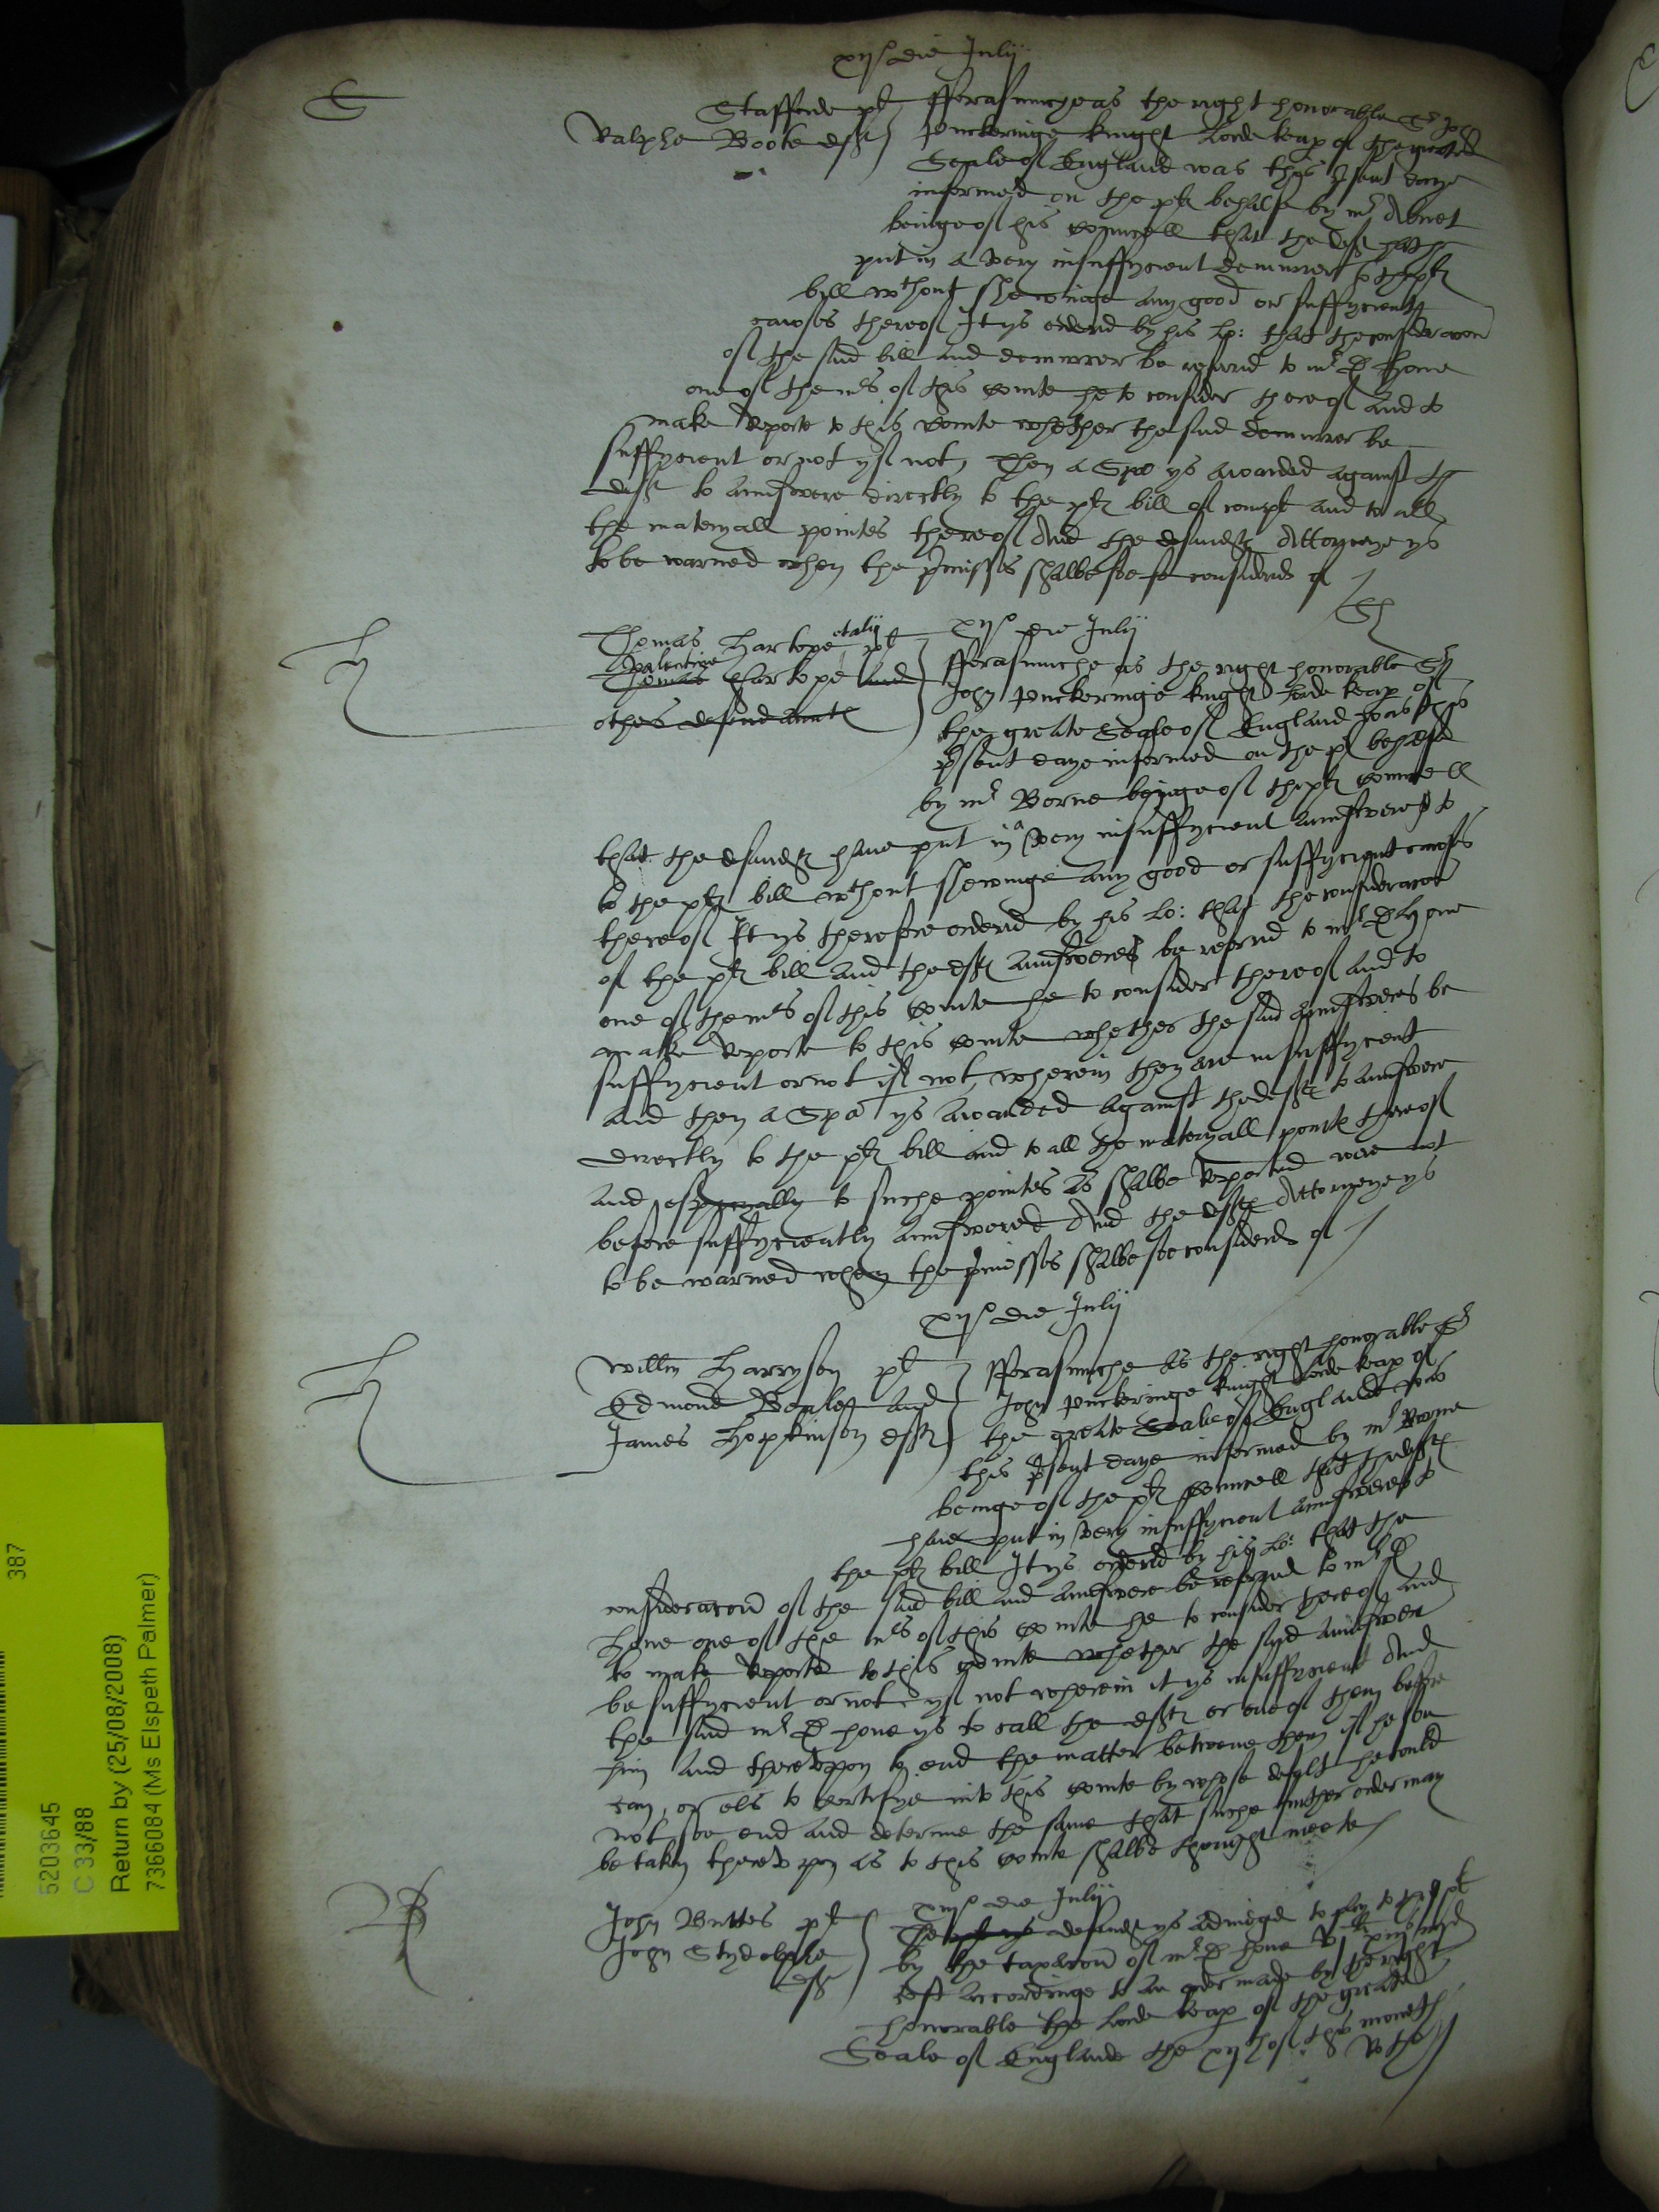 xijo die Julij
S
Stafforde plt
Ralphe Boote deft
fforasmuche as the right honorable Sr John
Puckeringe knight Lorde keap of the greate
Seale of England was this psent daye
informed on the plts behalfe by mr Abnet
beinge of his councell that the deft hath
put in a very insuffycient demurrer to the plts
bill wthout shewinge any good or suffycient
causes thereof It ys ordered by his Lp: that the consideracon
of the said bill and demurrer be referrd to mr D Hone
one of the mrs of this courte he to consider thereof and to
make reporte to this courte whether the said demurrer be
suffycient or not yf not, Then a Spa ys awarded against the
deft to aunswere directly to the plts bill of compt and to all
the materyall pointes thereof And the defendts Attorneye ys
to be warned when the pmisses shalbe soe considered of
H
xijo die Julij
Thomas Hartope et alij plt
Valentine
Thomas Hartope and
others defendaunts
fforasmuche as the right honorable Sr
John Puckeringe knight Lorde keap of
the greate Seale of England was this
psent daye informed on the plts behalfe
by mr Borne beinge of the plts councell
that the defendts have put in a very insuffycient aunswere to
to the plts bill wthout shewinge any good or suffycient causes
thereof It ys therefore ordered by his Lo: that the consideracon
of the plts bill and the defts aunsweres be referrd to mr D Hone
one of the mrs of this courte he to consider thereof and to
make reporte to this courte whether the said aunsweres be
suffycient or not if not, wherein they are insuffycient
and then a Spa ys awarded against the defts to aunswere
directly to the plts bill and to all the materyall points thereof
and especyally to suche pointes as shalbe reported were not
before suffycyently aunswered And the defts Attorneye ys
to be warned when the pmisses shalbe soe considered of
xijo die Julij
H
Willm Harryson plt
Edmond Beale and
James Hopkinson defts
fforasmuche as the right honorable Sr
John Puckeringe knight Lorde keap of
the greate Seale of Englande was
this psent daye informed by mr Borne
beinge of the plts councell that the defts
have put in very insuffycient aunsweres to
the plts bill It ys ordered by his Lo: that the
consideracon of the said bill and aunswere be referrd to mr D
Hone one of the mrs of this courte he to consider thereof and
to make reporte to this courte whether the sayd aunswer
be suffycient or not yf not wherein it ys insuffycient And
the said mr D hone ys to call the defts or one of them before
him and thereupon to end the matter betweene them if he soe
can, or els to certifye into this courte by whose defalt he could
not soe end and determe the same that suche further order may
be taken thereupon as to this courte shalbe thought meete
John Buttes plt
John Stydolphe
deft
xijo die Julij
The defendt ys adiudged to pay to the plt
by the taxacon of mr D hone
cost accordinge to an order made by the right
honorable the Lorde keap of the greate
Seale of Englande the xijth of this moneth
387
5203645
C 33/88
Return by (25/08/2008)
7366084 (Ms Elspeth Palmer)